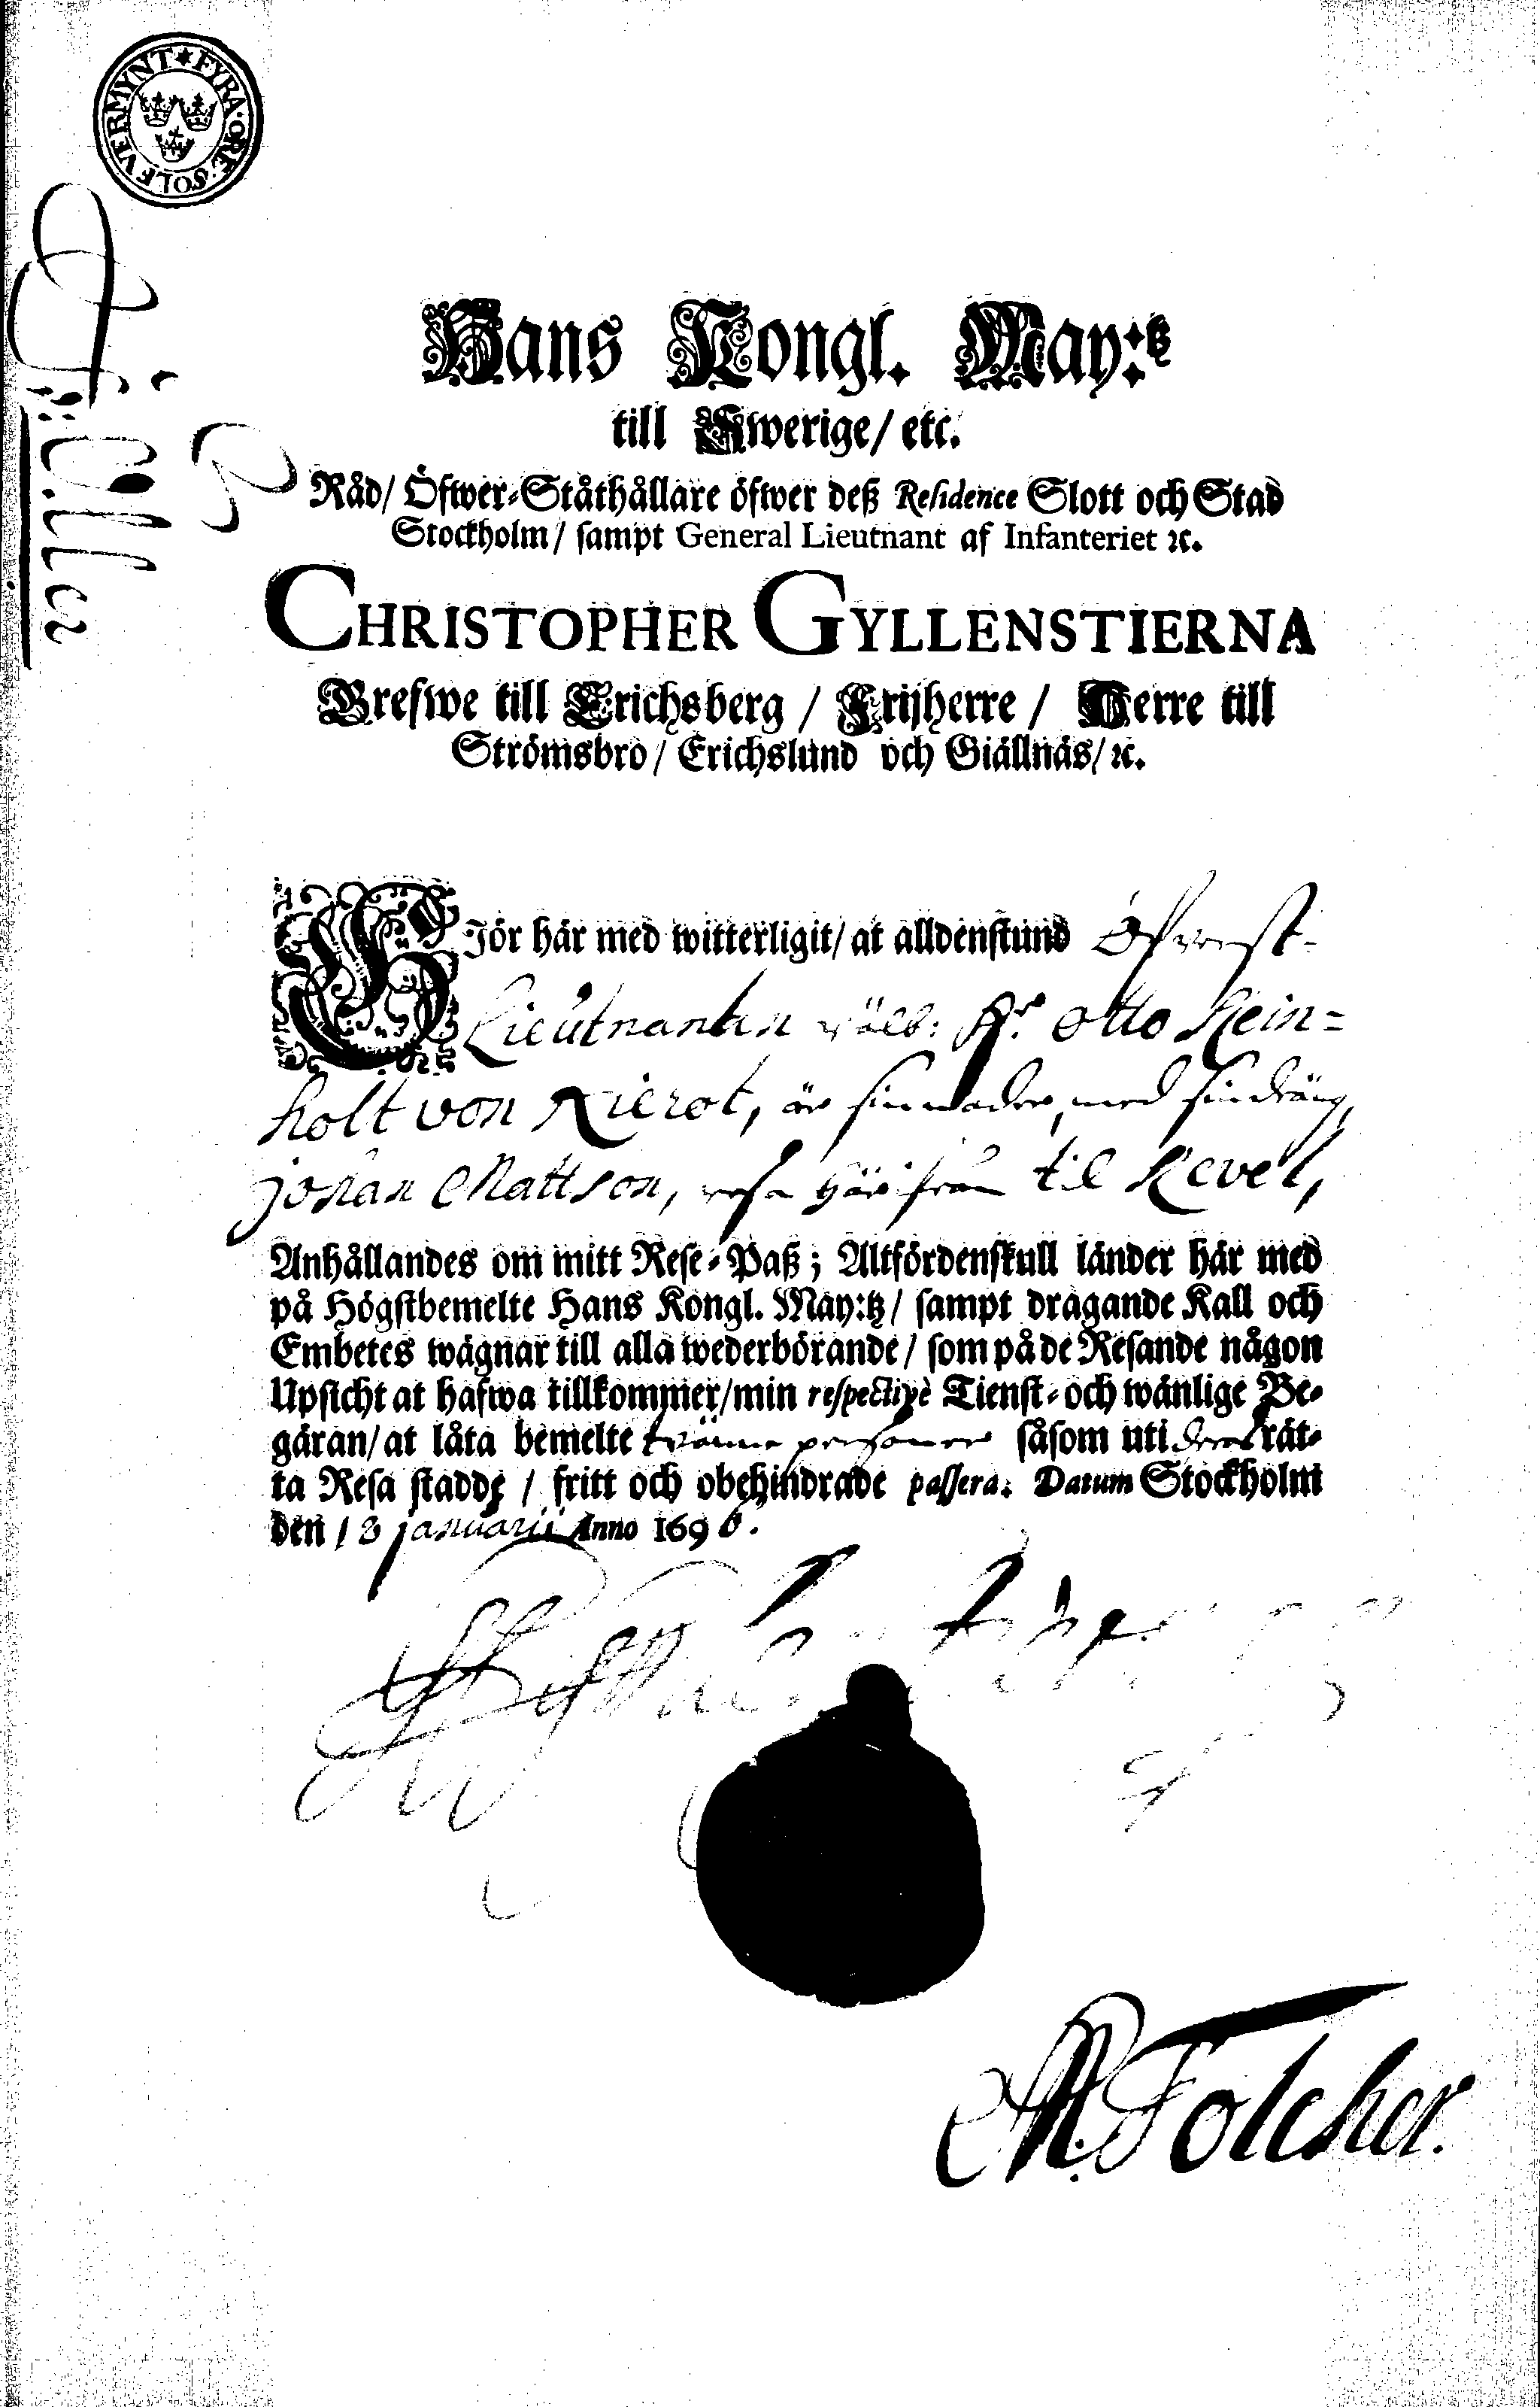 FYRA·ÖRE·SOLFVERMYNT
Hans Kongl. May:tz
till Swerige/ etc.
Råd/ Öfwer-Ståthållare öfwer deß Residence Slott och Stad
Stockholm/ sampt General Lieutnant af Infanteriet ꝛc.
CHRISTOPHER GYLLENSTIERNA
Grefwe till Erichsberg / Frijherre / Herre till
Strömsbro/ Erichslund och Giällnäs/ ꝛc.
GJör här med witterligit/ at alldenstund Öfverst-
Lieutnanten wälb: Hr. Otto Rein=
holt von Nierot, är sinnader, med sin dräng,
Johan Mattson, resa härifrån til Revel,
Anhållandes om mitt Rese-Paß; Altfördenskull länder här med
på Högstbemelte Hans Kongl. May:tz/ sampt dragande Kall och
Embetes wägnar till alla wederbörande/ som på de Resande någon
Upsicht at hafwa tillkommer/min respective Tienst-och wänlige Be-
gäran/at låta bemelte tvänne personer såsom uti deras rät-
ta Resa stadde / fritt och obehindrade passera. Datum Stockholm
den 13 Januarii Anno 1696.
Folcher.